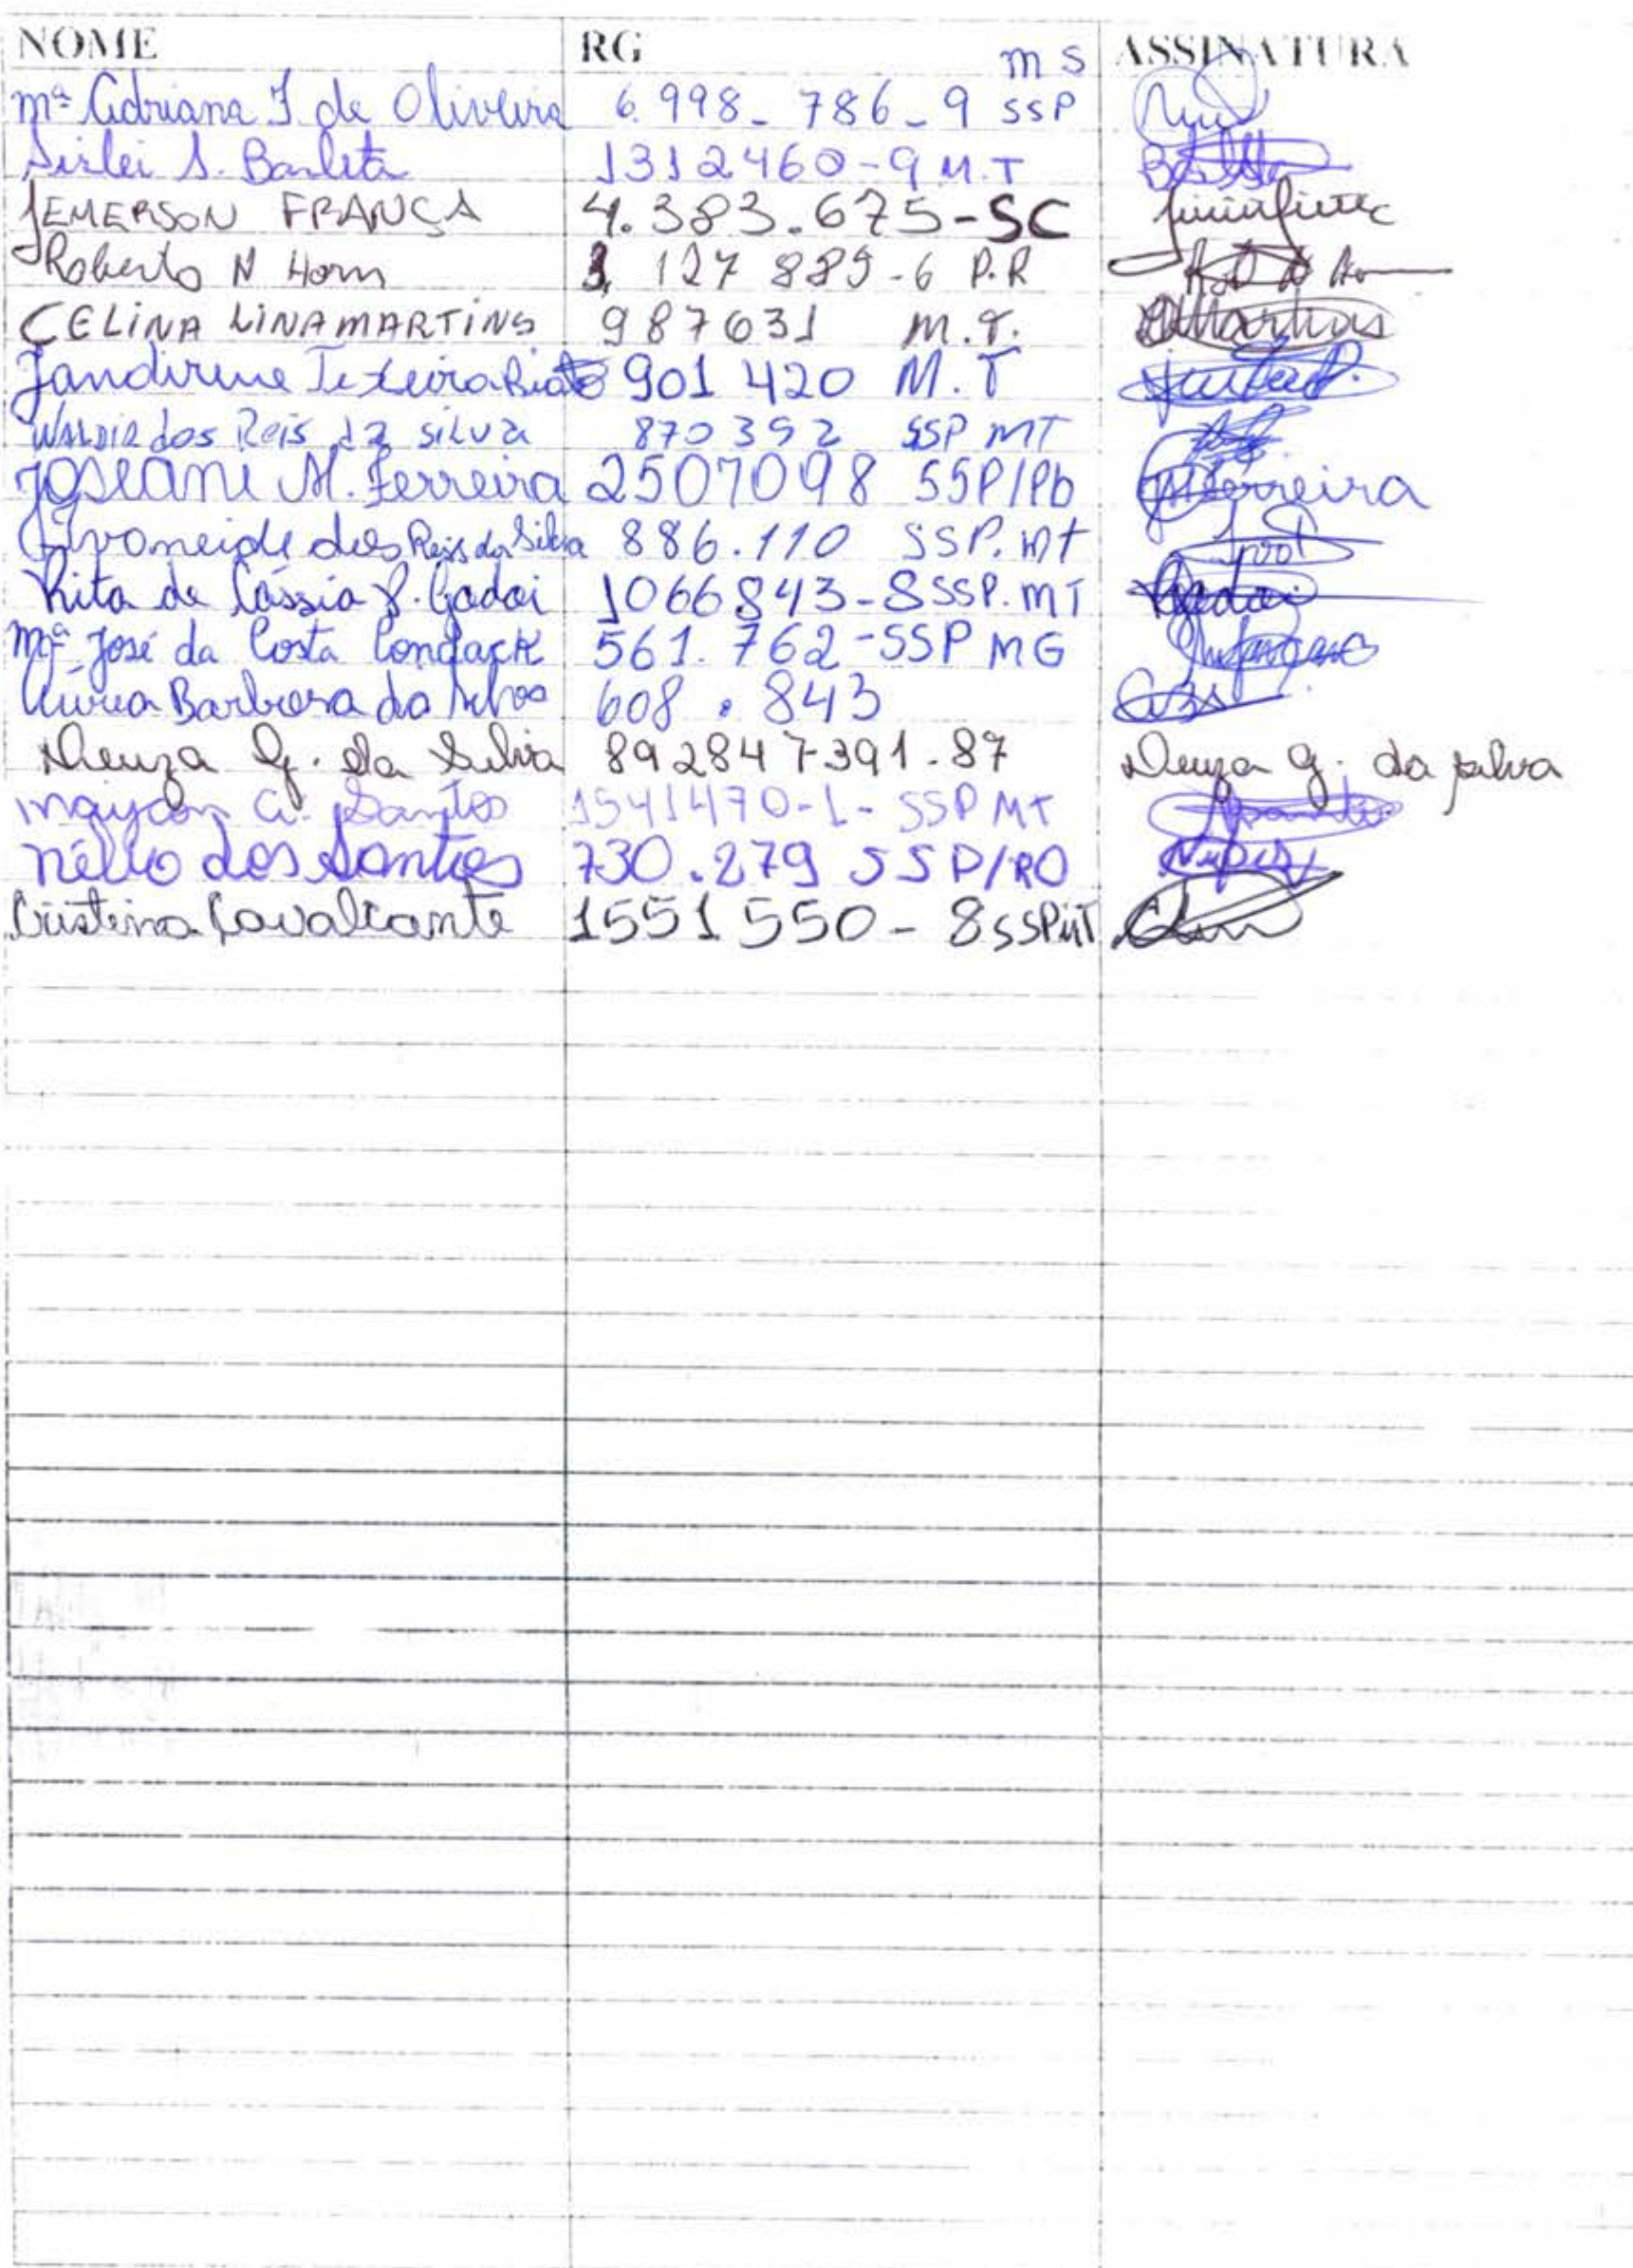 NOME RG ASSINATURA
mª Adriana J de Oliveira 6.998-786-9 SSP MS
Sirlei S. Barleta 1312460-9 M.T
JEMERSON FRANÇA 4.383.675-SC
Roberto N Horn 3.127 889-6 P.R
CELINA LINA MARTINS 987631 M.T. Martins
Jandirene Teixeira 901 420 M.T
WALDIR dos Reis da SILVA 870392 SSP MT
Joseane M. Ferreira 2507098 SSP/Pb Ferreira
Ivoneide dos Reis da Silva 886.110 SSP.Mt
Rita de Cássia P. Godoi 1066843-8 SSP.MT Godoi
Mª José da Costa Condack 561.762-SSP MG
Áurea Barbosa da Silva 608.843
Neuza G. da Silva 892847391.87 Neuza G. da Silva
Maycon A. Santos 1541470-1-SSP MT
Nélio dos Santos 730.279 SSP/RO
Cristina Cavalcante 1551550-8 SSP MT